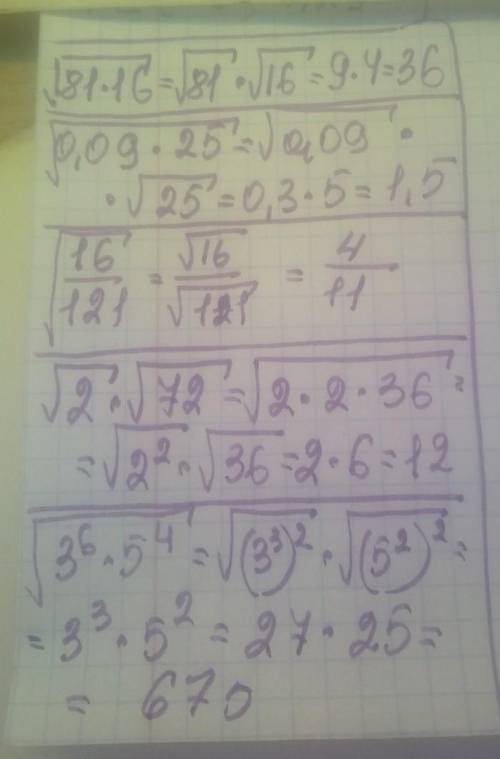 √81·16 = √81 · √16 = 9·4 = 36
√0,09 · 25 = √0,09 ·
· √25 = 0,3 · 5 = 1,5
√16/121 = √16/√121 = 4/11
√2 · √72 = √2 · 2 · 36 =
= √2² · √36 = 2 · 6 = 12
√3⁶ · 5⁴ = √(3³)² · √(5²)² =
= 3³ · 5² = 27 · 25 =
= 670